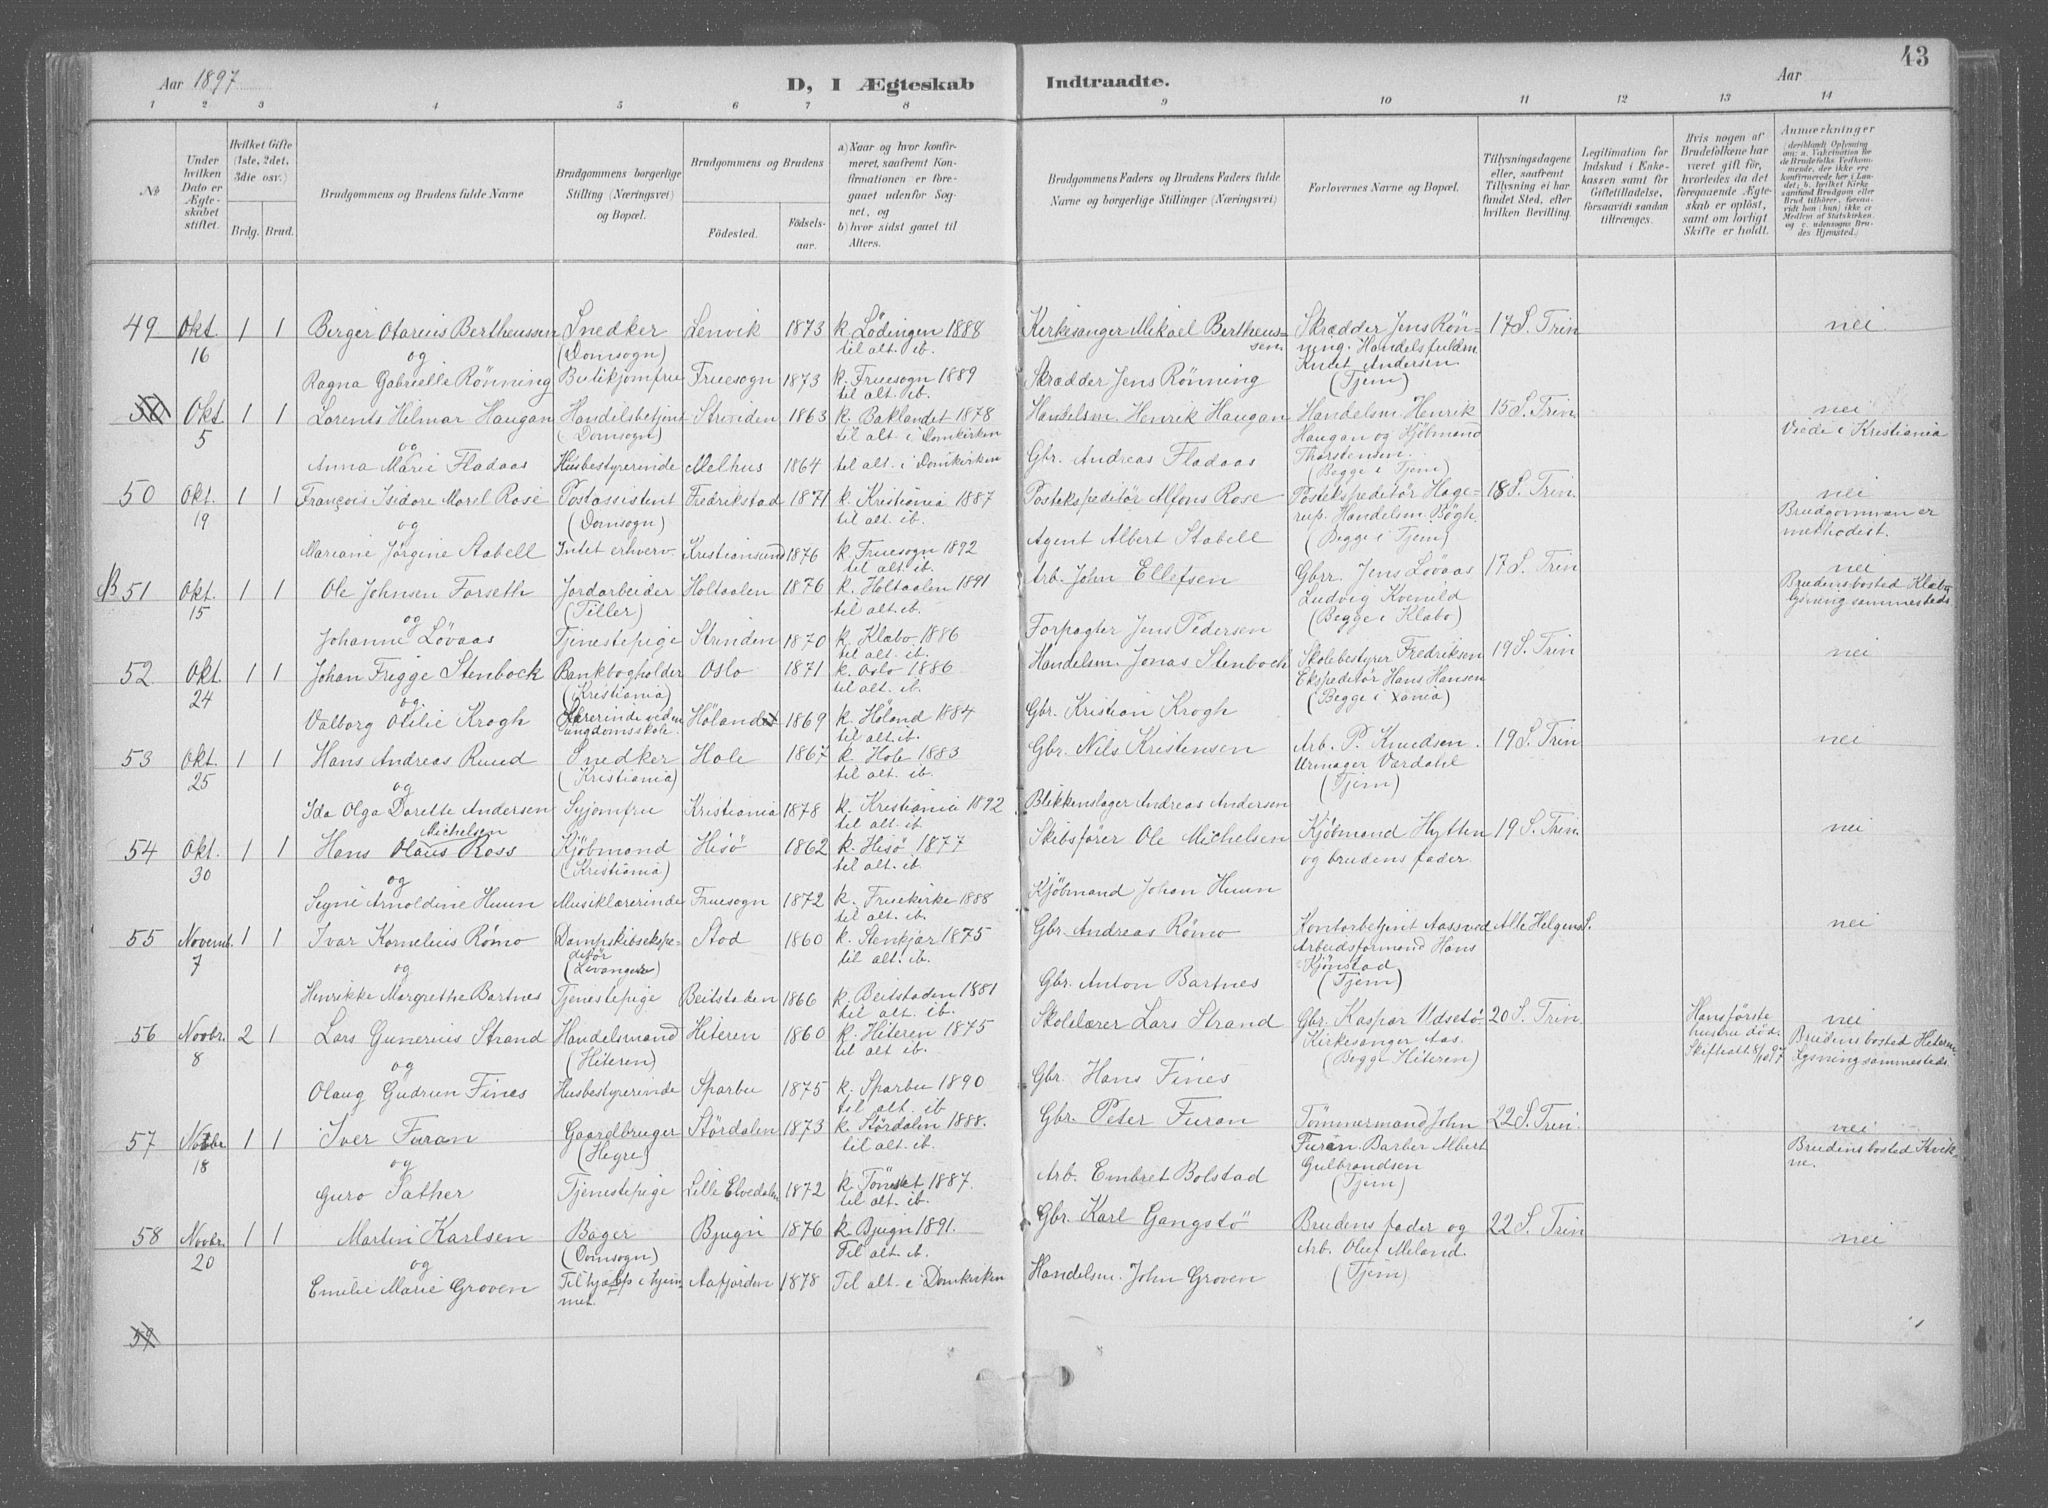 Aar 1897
D, I Ægteskab Indtraadte.
Aar
43
1 2 3 4 5 6 7 8 9 10 11 12 13 14
No
Under hvilken Dato er Ægteskabet stiftet.
Hvilket Gifte (1ste, 2det, 3die osv.)
Brdg. Brud.
Brudgommens og Brudens fulde Navne
Brudgommens borgerlige Stilling (Næringsvei) og Bopæl.
Brudgommens og Brudens
Fødested. Fødselsaar.
a) Naar og hvor konfirmeret, saafremt Konfirmationen er foregaaet udenfor Sognet, og
b) hvor sidst gaaet til Alters.
Brudgommens Faders og Brudens Faders fulde Navne og borgerlige Stillinger (Næringsvei)
Forlovernes Navne og Bopæl.
Tillysningsdagene eller, saafremt Tillysning ei har fundet Sted, efter hvilken Bevilling.
Legitimation for Indskud i Enkekassen samt for Giftetilladelse, forsaavidt saadan tiltrænges.
Hvis nogen af Brudefolkene har været gift før, hvorledes da det foregaaende Ægteskab er opløst, samt om lovligt Skifte er holdt.
Anmærkninger (deriblandt Oplysning om: a. Vakcination for de Brudefolks Vedkommende, der ikke ere konfirmerede her i Landet; b. hvilket Kirkesamfund Brudgom eller Brud tilhører, forsaavidt han (hun) ikke er Medlem af Statskirken, og c. udensogns Brudes Hjemsted.)
49 Okt. 16 1 1 Berger Otarius Bertheussen Snedker (Domsogn) Lenvik 1873 k. Lödingen 1888 til alt. ib. Kirkesanger Mikael Bertheussen Skrædder Jens Rönning. Handelsfuldm. Knut Andersen (Tjem) 17 S. Trin nei
og
Ragna Gabrielle Rönning Butikjomfru Fruesogn 1873 k. Fruesogn 1889 til alt. ib. Skrædder Jens Rönning
50 Okt 5 1 1 Lorents Hilmar Haugan Handelsbetjent (Domsogn) Strinden 1863 k. Baklandet 1878 til alt. i Domkirken Handelsm. Henrik Haugan Handelsm. Henrik Haugan og Kjöbmand Thorstensen. (Begge i Tjem) 15 S. Trin nei Viede i Kristiania
og
Anna Marie Fladaas Husbestyrerinde Melhus 1864 til alt. i Domkirken Gbr. Andreas Fladaas
50 Okt. 19 1 1 François Isidore Morel Rosé Postassistent (Domsogn) Fredrikstad 1871 k. Kristiania 1887 til alt. ib. Postekspeditör Alfons Rose Postekspeditör Hagerup. Handelsm. Bögh (Begge i Tjem) 18 S. Trin. nei Brudgommen er methodist.
og
Mariane Jörgine Stabell Intet erhverv Kristiansund 1876 k. Fruesogn 1892 til alt. ib. Agent Albert Stabell
51 Okt. 15 1 1 Ole Johnsen Forseth Jordarbeider (Tiller) Holtaalen 1876 k. Holtaalen 1891 til alt. ib. Arb. John Ellefsen Gbr. Jens Lövaas Ludvig Kvenild (Begge i Klæbo) 17 S. Trin nei Brudens bosted Klæbo lysning sammesteds
og
Johanne Lövaas Tjenestepige Strinden 1870 k. Klæbo 1886 til alt. ib. Forpagter Jens Pedersen
52 Okt. 24 1 1 Johan Frigge Stenbock Bankbogholder (Kristiania) Oslo 1871 k. Oslo 1886 til alt. ib. Handelsm. Jonas Stenbock Skolebestyrer Fredriksen Ekspeditör Hans Hansen (Begge i Xania) 19 S. Trin nei
og
Valborg Otilie Krogh Lærerinde ved en ungdomsskole. Höland 1869 k. Höland 1884 til alt. ib. Gbr. Kristian Krogh
53 Okt. 25 1 1 Hans Andreas Ruud Snedker (Kristiania) Hole 1867 k. Hole 1883 til alt. ib. Gbr. Nils Kristensen Arb. P. Knudsen. Urmager Værdahl (Tjem) 19 S. Trin nei
og
Ida Olga Dorette Andersen Syjomfru Kristiania 1878 k. Kristiania 1892 til alt. ib. Blikkenslager Andreas Andersen
54 Okt. 30 1 1 Hans Olaus Michelsen Ross Kjöbmand (Kristiania) Hisö 1862 k. Hisö 1877 til alt. ib. Skibsförer Ole Michelsen Kjöbmand Hytten og brudens fader. 19 S. Trin. nei
og
Signe Arnoldine Huun Musiklærerinde Fruesogn 1872 k. Fruekirke 1888 til alt. ib. Kjöbmand Johan Huun
55 Novemb. 7 1 1 Ivar Kornelius Römo Dampskibsekspeditör (Levanger) Stod 1860 k. Stenkjær 1875 til alt. ib. Gbr. Andreas Römo Kontorbetjent Aassved Arbeidsformand Hans Kjönstad (Tjem) Alle Helgens S. nei
og
Henrikke Margrethe Bartnes Tjenestepige Beitstaden 1866 k. Beitstaden 1881 til alt. ib. Gbr. Anton Bartnes
56 Novbr. 8 2 1 Lars Gunerius Strand Handelsmand (Hiteren) Hiteren 1860 k. Hiteren 1875 til alt. ib. Skolelærer Lars Strand Gbr. Kaspar Udsetö. Kirkesanger Aas. (Begge Hiteren) 20 S. Trin Hans förste hustru död. Skifteatt 8/10 97 nei Brudens bosted Hiteren Lysning sammesteds
og
Olaug Gudrun Fines Husbestyrerinde Sparbu 1875 k. Sparbu 1890 til alt. ib Gbr. Hans Fines
57 Novbr 18 1 1 Iver Furan Gaardbruger (Hegre) Stördalen 1873 k. Stördalen 1888. til alt. ib. Gbr. Peter Furan Tömmermand John Furan Barber Albert Gulbrandsen (Tjem) 22 S. Trin. nei Brudens bosted Kvikne.
og
Guro Sather Tjenestepige Lille Elvedalen 1872 k. Tönset 1887. til alt. ib. Arb. Embret Bolstad
58 Novbr. 20 1 1 Martin Karlsen Bager (Domsogn) Bjugn 1876 k. Bjugn 1891. Til alt. ib. Gbr. Karl Gangstö Brudens fader og Arb. Oluf Meland. (Tjem) 22 S. Trin nei
og
Emilie Marie Groven Til hjælp i hjemmet. Aafjorden 1878 Til alt. i Domkirken Handelsm. John Groven
59